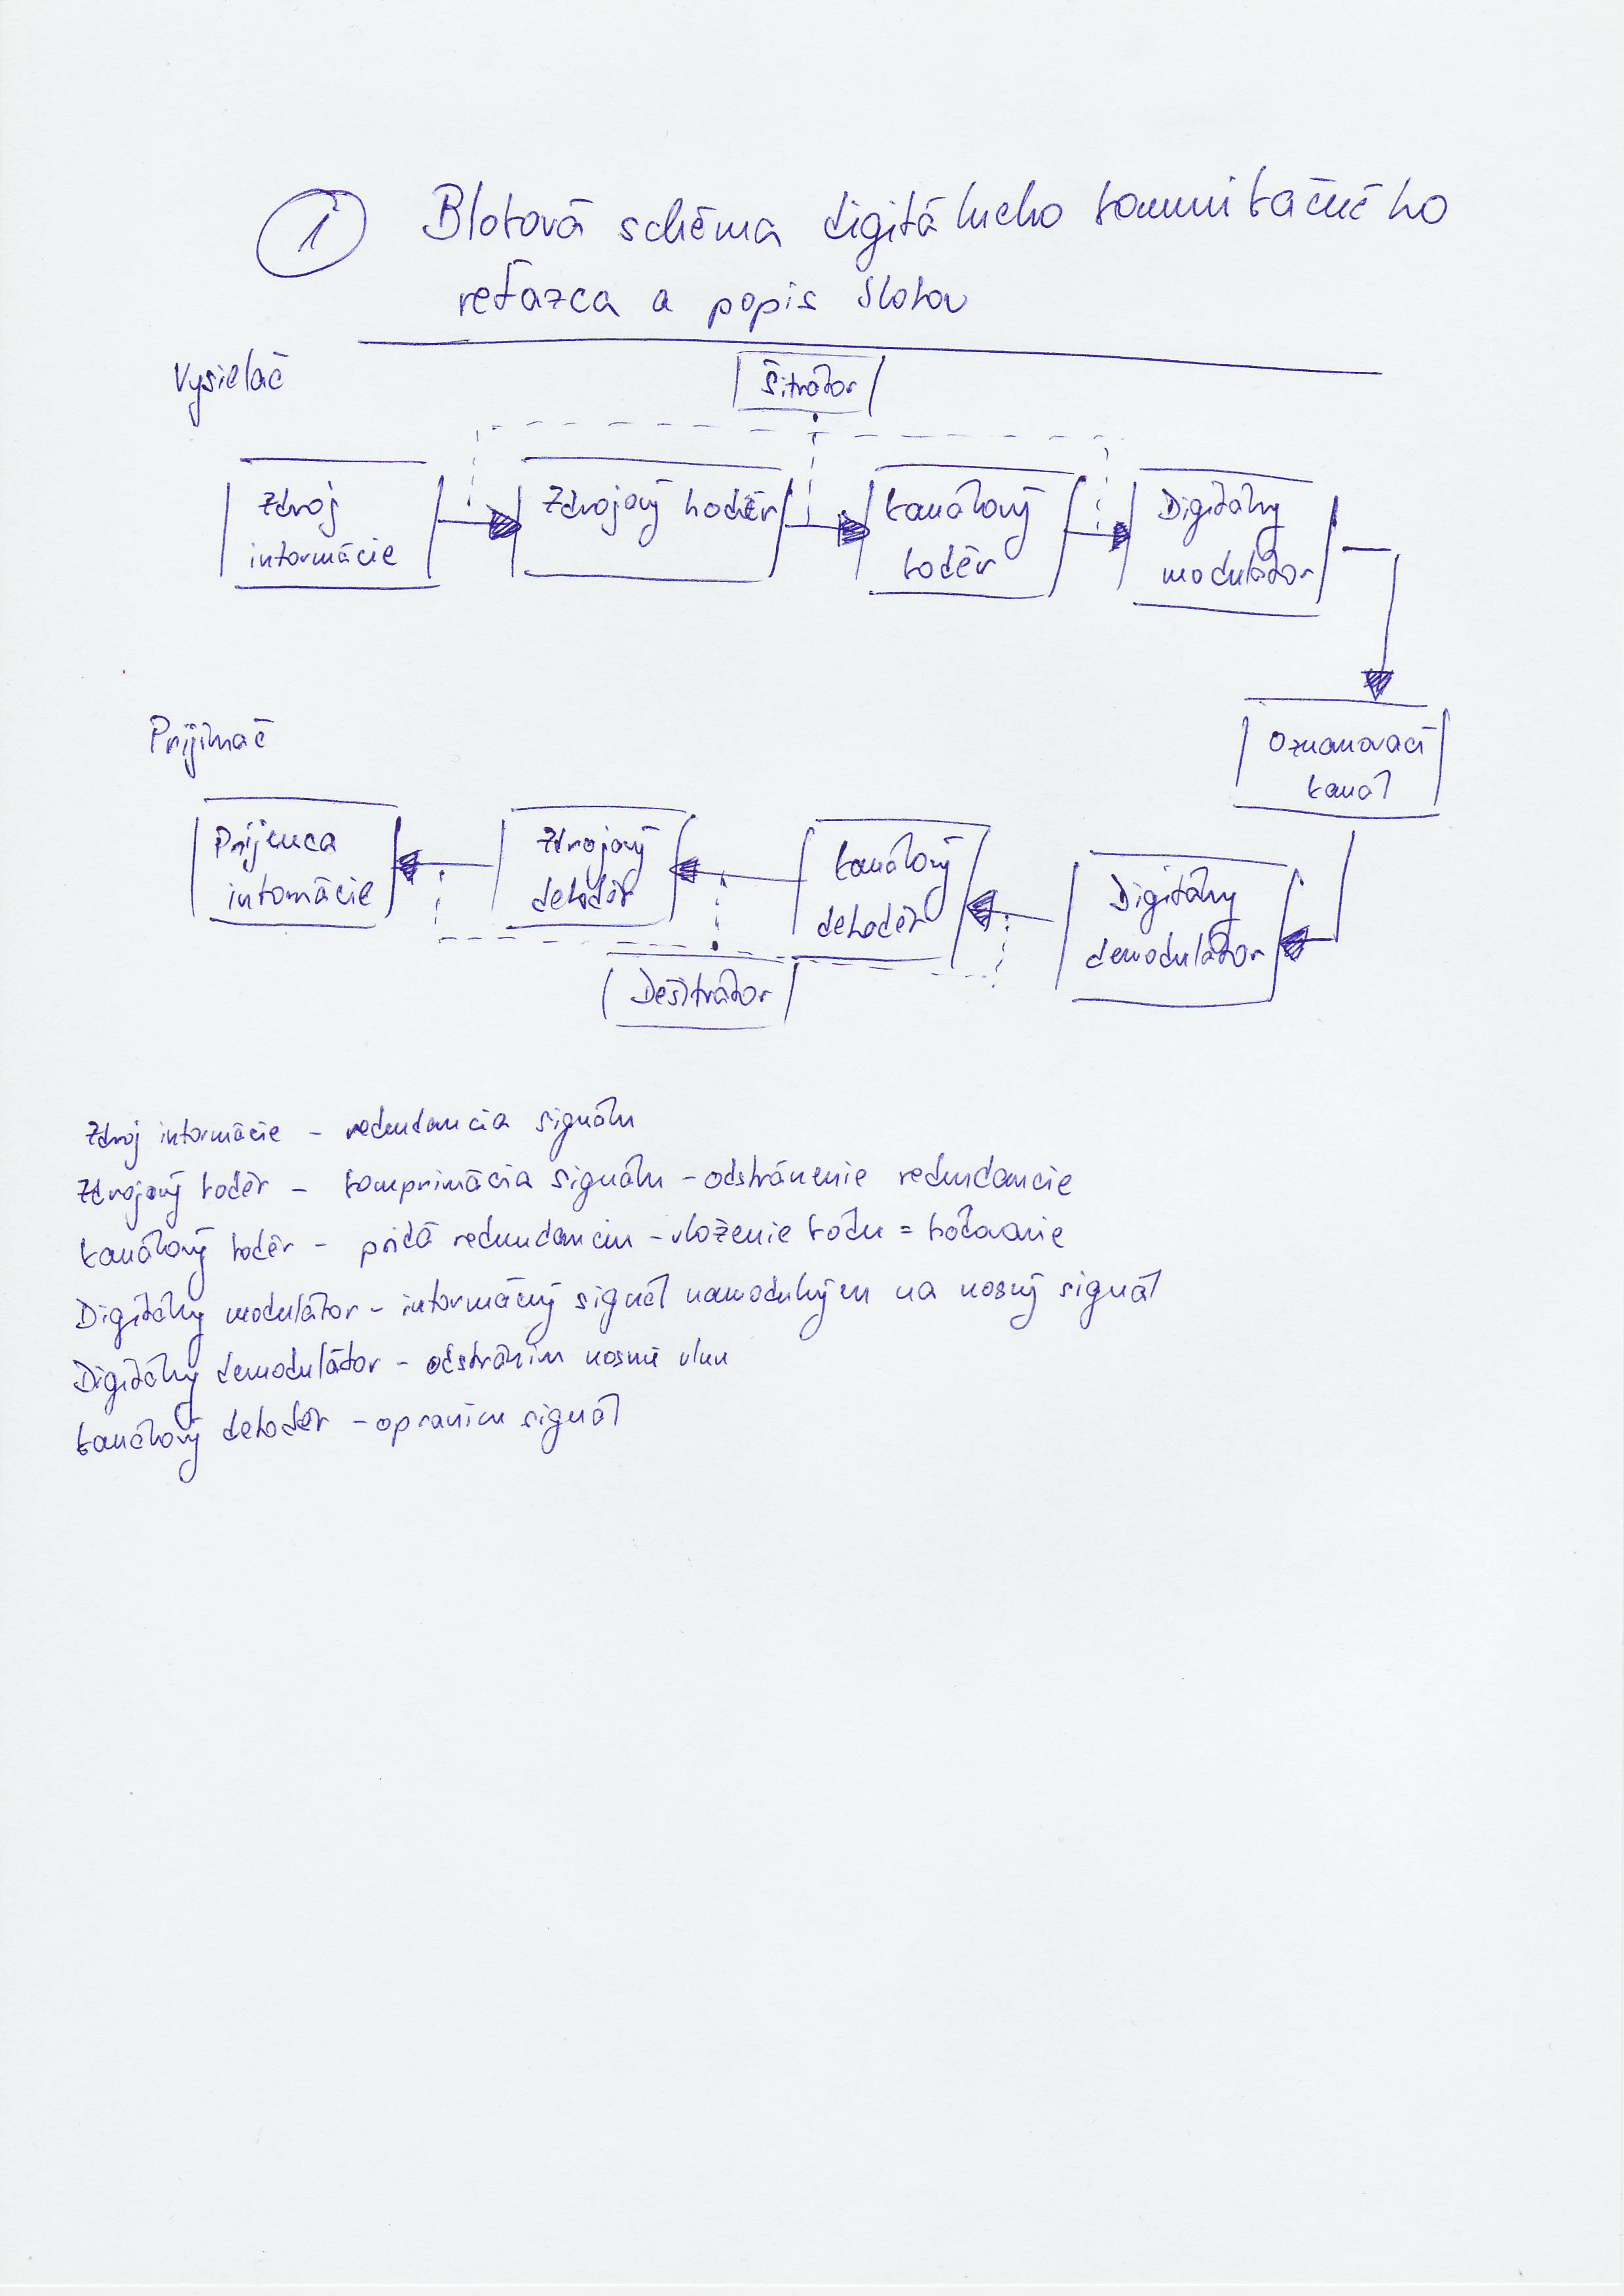 1 Bloková schéma digitálneho komunikačného
reťazca a popis blokov
Vysielač
Šifrátor
Zdroj
informácie
Zdrojový kodér
kanálový
kodér
Digitálny
modulátor
Oznamovací
kanál
Prijímač
Príjemca
infomácie
Zdrojový
dekodér
kanálový
dekodér
Digitálny
demodulátor
Dešifrátor
Zdroj informácie - redundancia signálu
Zdrojový kodér - komprimácia signálu - odstránenie redundancie
kanálový kodér - pridá redundanciu - vloženie kódu = kódovanie
Digitálny modulátor - informáčný signál namodulujem na nosný signál
Digitálny demodulátor - odstránim nosnú vlnu
kanálový dekodér - opravím signál